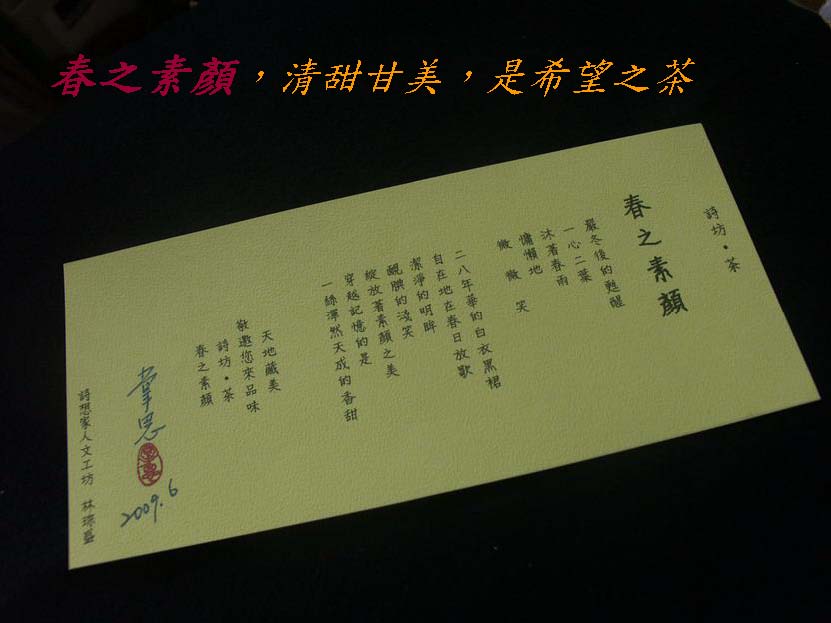 春之素顏，清甜甘美，是希望之茶
詩坊•茶
春之素顏
嚴冬後的甦醒
一心二葉
沐著春雨
慵懶地
微 微 笑
二八年華的白衣黑裙
自在地在春日放歌
潔淨的明眸
靦腆的淺笑
綻放著素顏之美
穿越記憶的是
一絲渾然天成的香甜
天地藏美
敬邀您來品味
詩坊•茶
春之素顏
韋恩
2009.6
詩想家人文工坊 林